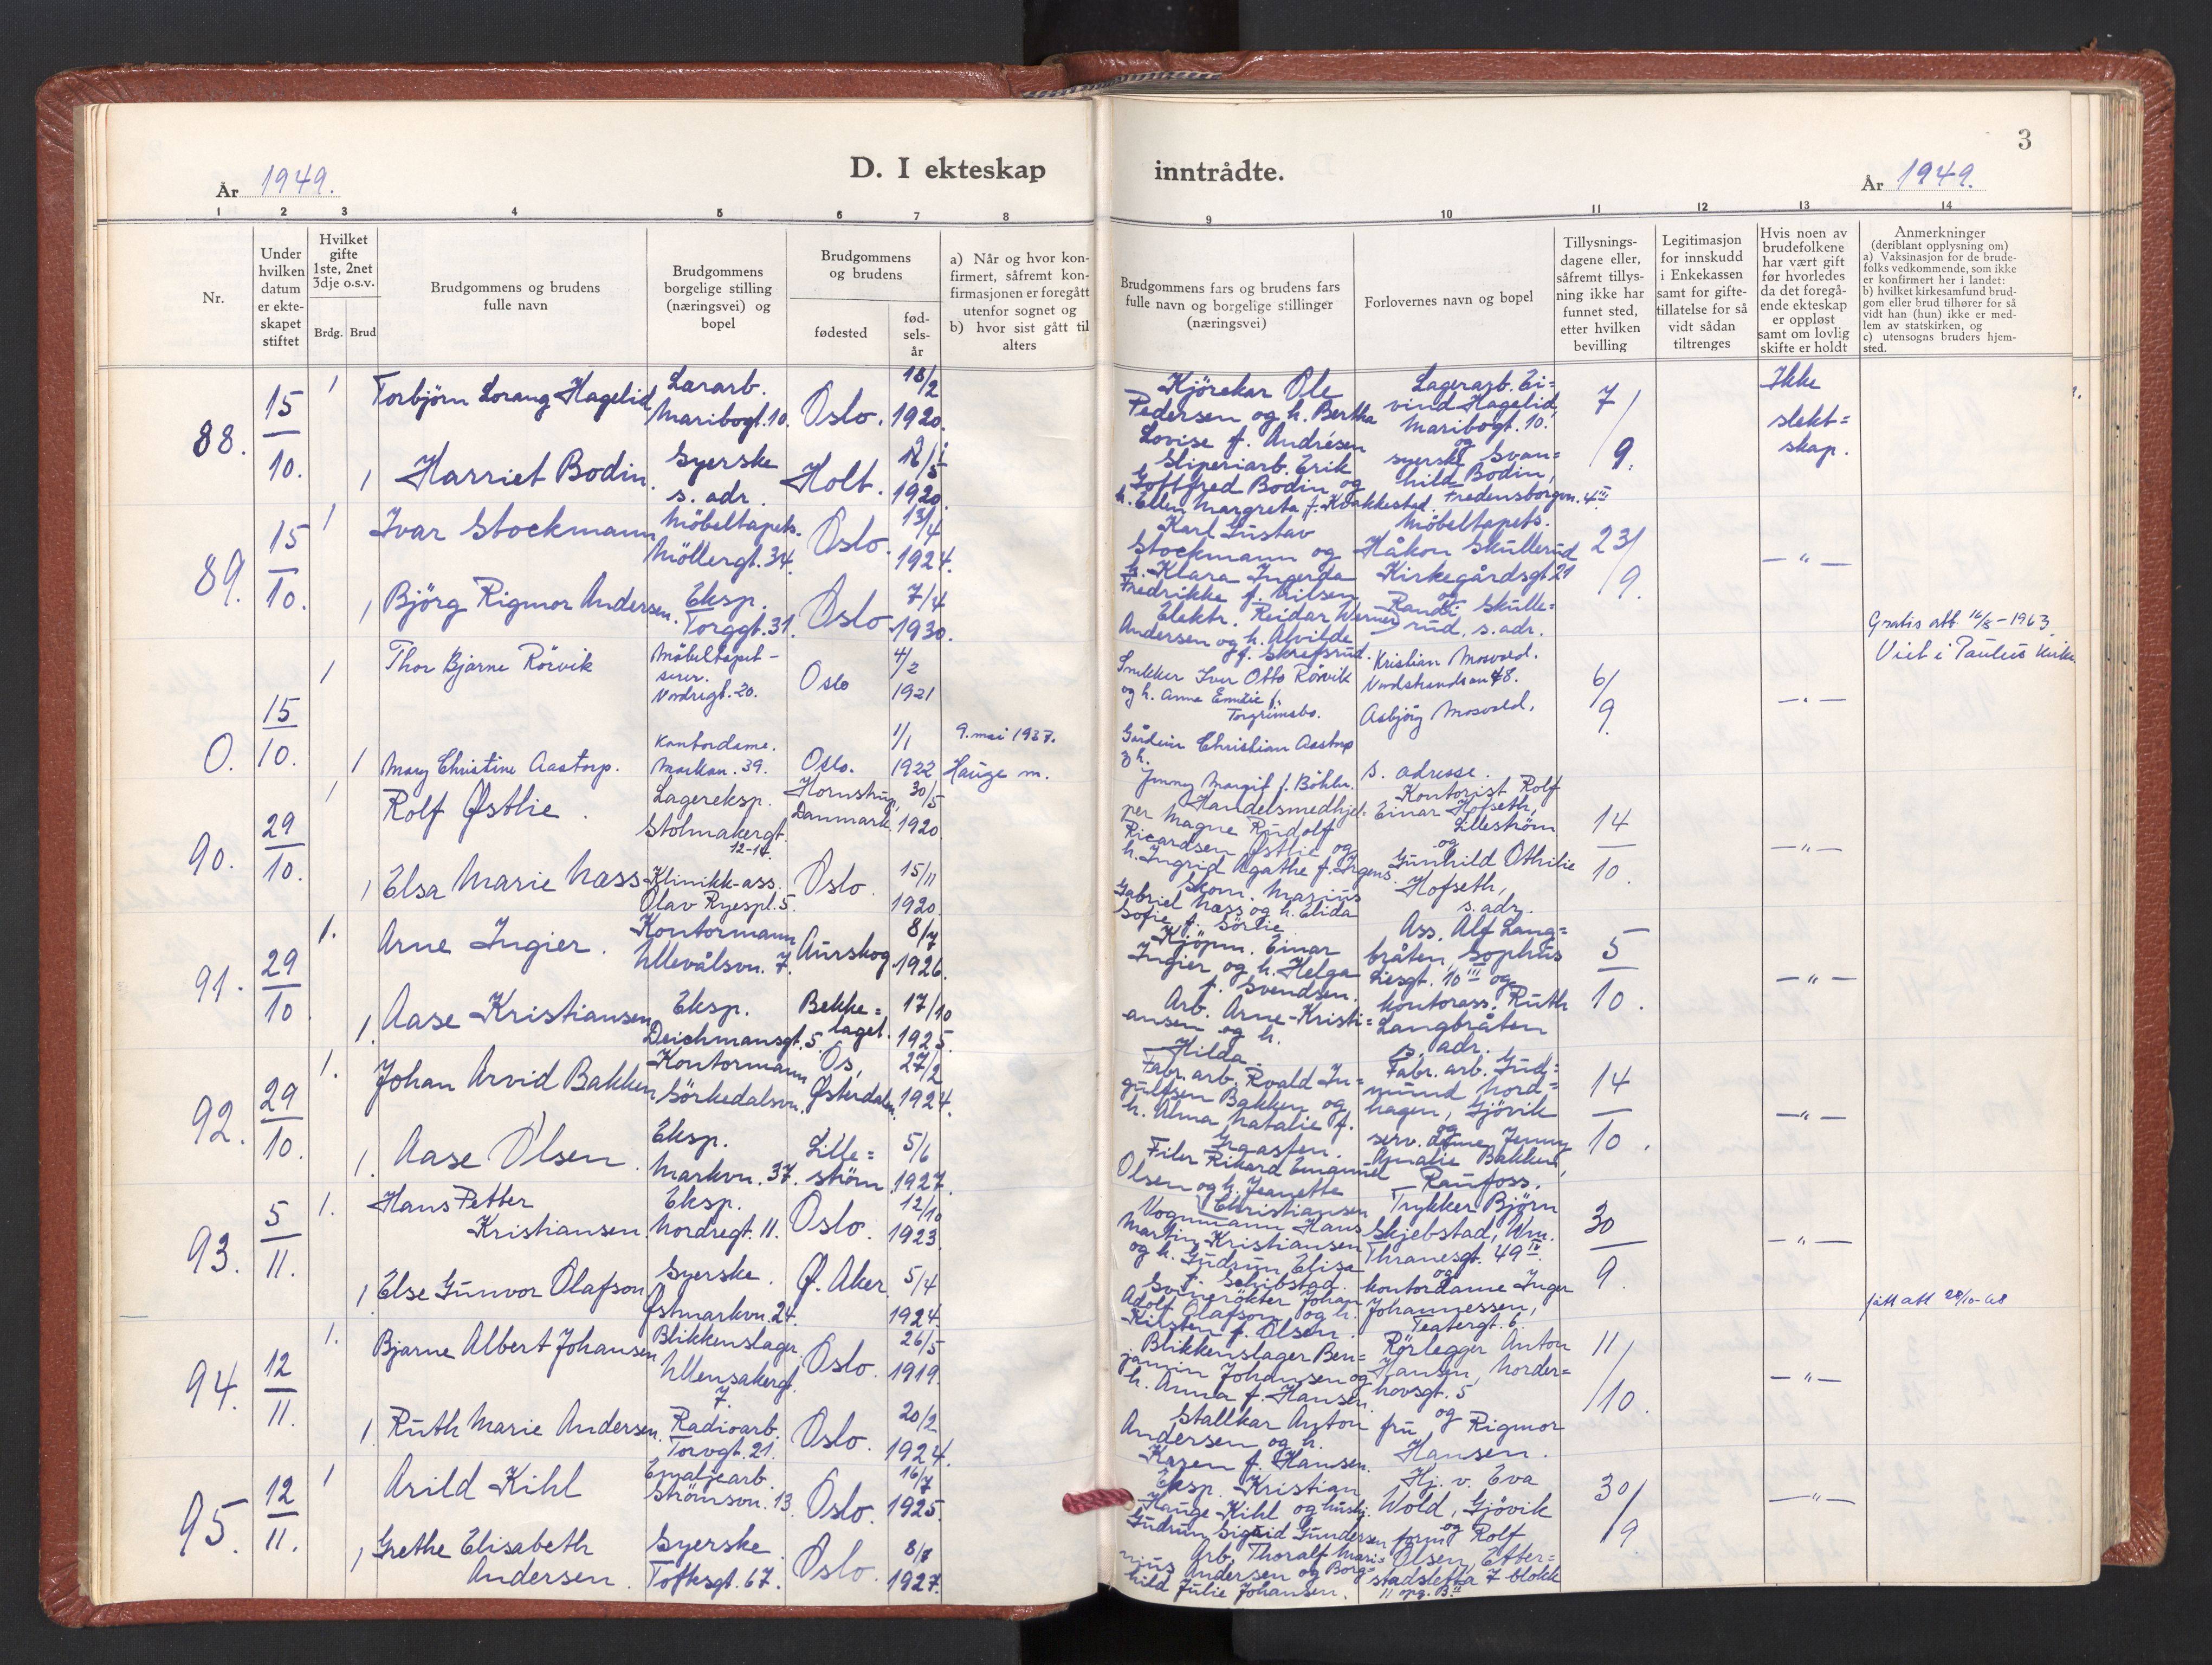 3
År 1949.
D. I ekteskap
inntrådte.
År 1949.
1 2 3 4 5 6 7 8 9 10 11 12 13 14
Nr.
Under hvilken datum er ekte-skapet stiftet
Hvilket gifte 1ste, 2net 3dje o.s.v.
Brdg. Brud
Brudgommens og brudens fulle navn
Brudgommens borgelige stilling (næringsvei) og bopel
Brudgommens og brudens
fødested
fød-sels-år
a) Når og hvor kon-firmert, såfremt kon-firmasjonen er foregått utenfor sognet og
b) hvor sist gått til alters
Brudgommens fars og brudens fars fulle navn og borgelige stillinger (næringsvei)
Forlovernes navn og bopel
Tillysnings-dagene eller, såfremt tillys-ning ikke har funnet sted, etter hvilken bevilling
Legitimasjon for innskudd i Enkekassen samt for gifte-tillatelse for så vidt sådan tiltrenges
Hvis noen av brudefolkene har vært gift før hvorledes da det foregå-ende ekteskap er oppløst samt om lovlig skifte er holdt
Anmerkninger
(deriblant opplysning om)
a) Vaksinasjon for de brude-folks vedkommende, som ikke er konfirmert her i landet:
b) hvilket kirkesamfund brud-gom eller brud tilhører for så vidt han (hun) ikke er med-lem av statskirken, og
c) utensogns bruders hjem-sted.
88.
15/10.
1 Torbjörn Lorang Hagelid
Lærarb.
Maribogt. 10.
Oslo.
18/2 1920.
Kjörekar Ole
Pedersen og h. Bertha
Lovise f. Andrésen
Lagerarb. Ei=
vind Hagelid,
Maribogt. 10.
og
7/9.
Ikke
slekt=
skap.
1 Harriet Bodin.
Syerske
s. adr.
Holt.
1920.
Sliperiarb. Erik
Gottfred Bodin og
h. Ellen Margreta f. Kvakkestad.
syerske Svan=
hild Bodin,
Fredensborgvn. 4 III
89.
15/10.
1 Ivar Stockmann
Möbeltapets.
Möllergt. 34.
Oslo.
13/4 1924.
Karl Gustav
Stockmann og
h. Klara Ingerda
Fredrikke f. Nilsen
Möbeltapets.
Håkon Skullerud
Kirkegårdsgt 21
og
23/9.
— " —
1 Björg Rigmor Andersen.
Eksp.
Torggt. 31.
Oslo
7/4 1930.
Elektr. Reidar Werner
Andersen og h. Alvilde
f. Skrefsrud.
Randi Skulle=
rud, s. adr.
Gratis att 16/8-1963
Viet i Paulus kirke
0.
15/10.
1 Thor Bjarne Rörvik
Möbeltapet-
serer.
Nordregt. 20.
Oslo
4/2 1921
Snekker Iver Otto Rörvik
og h. Anna Emilie f.
Torgrimsbo.
Kristian Mosvold.
Nordstrandsvn 48.
Asbjörg Mosvold,
6/9.
— " —
1 Mary Christine Aastorp.
Kontordame.
Markvn. 39.
Oslo.
1/1 1922
9. mai 1937.
Hauge m.
Gårdeier Christian Aastorp
og h.
Jenny Margit f. Böhler.
s. adresse.
90.
29/10.
1 Rolf Østlie.
Lagereksp.
Stolmakergt.
12-14.
Hornstrup,
Danmark.
30/5 1920.
Handelsmedhjel=
per Magne Rudolf
Ricardsen Østlie og
h. Ingrid Agathe f. Irgens.
Kontorist Rolf
Einar Hofseth,
Lilleström
og
14/10.
— " —
1 Elsa Marie Næss
Klinikk-ass.
Olav Ryespl. 5.
Oslo.
15/11 1920.
Skom. Marius
Gabriel Næss og h. Elida
Sofie f. Sörlie.
Gunhild Othilie
Hofseth,
s. adr.
91.
29/10
1. Arne Ingier.
Kontormann
Ullevålsvn. 7.
Aurskog
8/7 1926.
Kjöpm. Einar
Ingier og h. Helga
f. Svendsen.
Ass. Alf Lang=
bråten, Sophus
Liesgt. 10 III og
5/10.
— " —
1. Aase Kristiansen
Eksp.
Deichmansgt. 5.
Bekke=
laget.
17/10 1925.
Arb. Arne Kristi=
ansen og h.
Hilda
kontorass. Ruth
Langbråten
s. adr.
92.
29/10.
1. Johan Arvid Bakken
Kontormann
Sörkedalsvn.
Os,
Østerdalen
27/2 1924.
Fabr. arb. Roald In=
gulfsen Bakken og
h. Alma Natalie f.
Graasten.
Fabr. arb. Gud=
mund Nord=
hagen, Gjövik
og
14/10.
— " —
1. Aase Olsen.
Eksp.
Markvn. 37.
Lille=
ström
5/6 1927.
Filer Rikard Emanuel
Olsen og h. Jeanette
Christiansen
serv. dame Jenny
Amalie Bakken,
Raufoss.
93.
5/11.
1. Hans Petter
Kristiansen.
Eksp.
Nordregt. 11.
Oslo.
12/10 1923.
Vognmann Hans
Martin Kristiansen
og h. Gudrun Elise
f. Schibstad.
Trykker Björn
Skjebstad, Wm.
Thranesgt. 49 IV
og
30/9.
— " —
1. Else Gunvor Olafson
Syerske.
Östmarkvn. 24.
Ø. Aker
5/4 1924.
Svinerökter Johan
Adolf Olafson og h.
Kirsten f. Olsen.
kontordame Inger
Johannessen,
Teatergt. 6.
fått att 28/10-68
94.
12/11.
1. Bjarne Albert Johansen
Blikkenslager
Ullensakergt.
7.
Oslo.
26/5 1919.
Blikkenslager Ben=
jamin Johansen og
h. Anna f. Hansen.
Rørlegger Anton
Hansen, Norder=
hovsgt. 5
og
11/10.
— " —
1. Ruth Marie Andersen.
Radioarb.
Torvgt. 21.
Oslo.
20/2 1924.
Stallkar Anton
Andersen og h.
Karen f. Hansen.
fru Rigmor
Hansen.
95.
12/11.
1 Arild Kihl
Emaljearb.
Strömsvn. 13.
Oslo.
16/7 1925.
Eksp. Kristian
Hauge-Kihl og huskj.
Gudrun Sigrid Gundersen
Hj. v. Eva
Wold, Gjövik
og
30/9
— " —
1 Grethe Elisabeth
Andersen.
Syerske
Toftesgt. 67.
Oslo.
1927.
Arb. Thoralf Mari=
nius Andersen og Borg=
hild Julie Johansen.
form Rolf
Olsen, Etter=
stadsletta 7 blokk
11 opg. B II